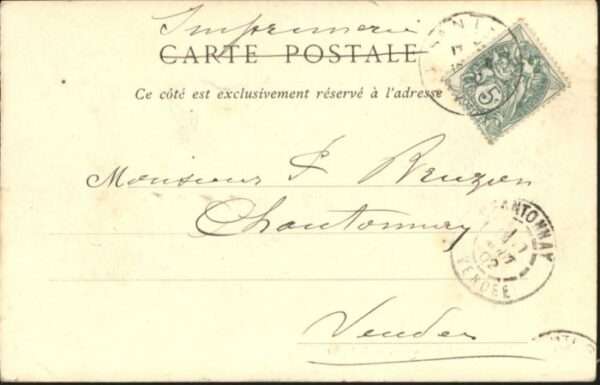 Imprimerie
CARTE POSTALE
Ce côté est exclusivement réservé à l'adresse
5
Monsieur
Chantonnay
CHANTONNAY
02
VENDEE
Vendée